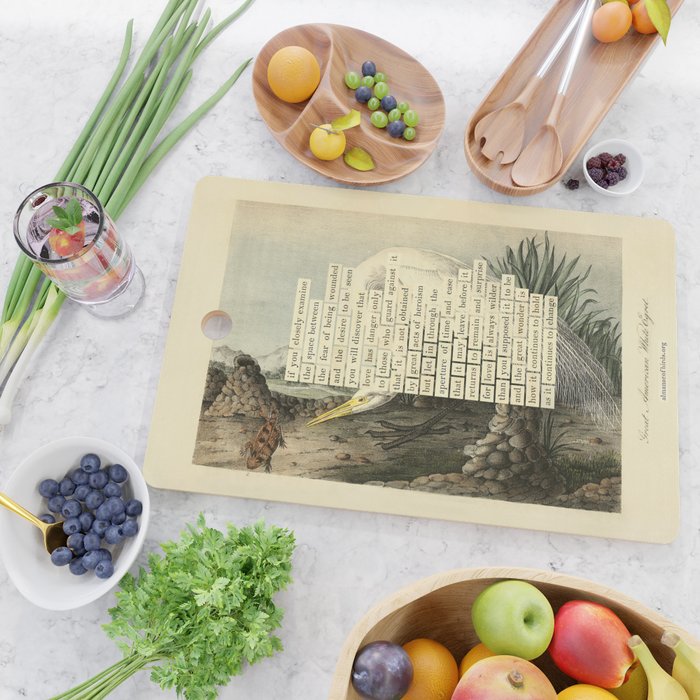 if you closely examine
the space between
the fear of being wounded
and the desire to be seen
you will discover that
love has danger only
to those who guard against it
that it is not obtained
by great acts of heroism
but led in through the
aperture of time and ease
that it may leave before it
returns to remain and surprise
for love is always wilder
than you supposed it to be
and the great wonder is
how it continues to hold
as it continues to change
Great American White Egret.
almanacofbirds.org